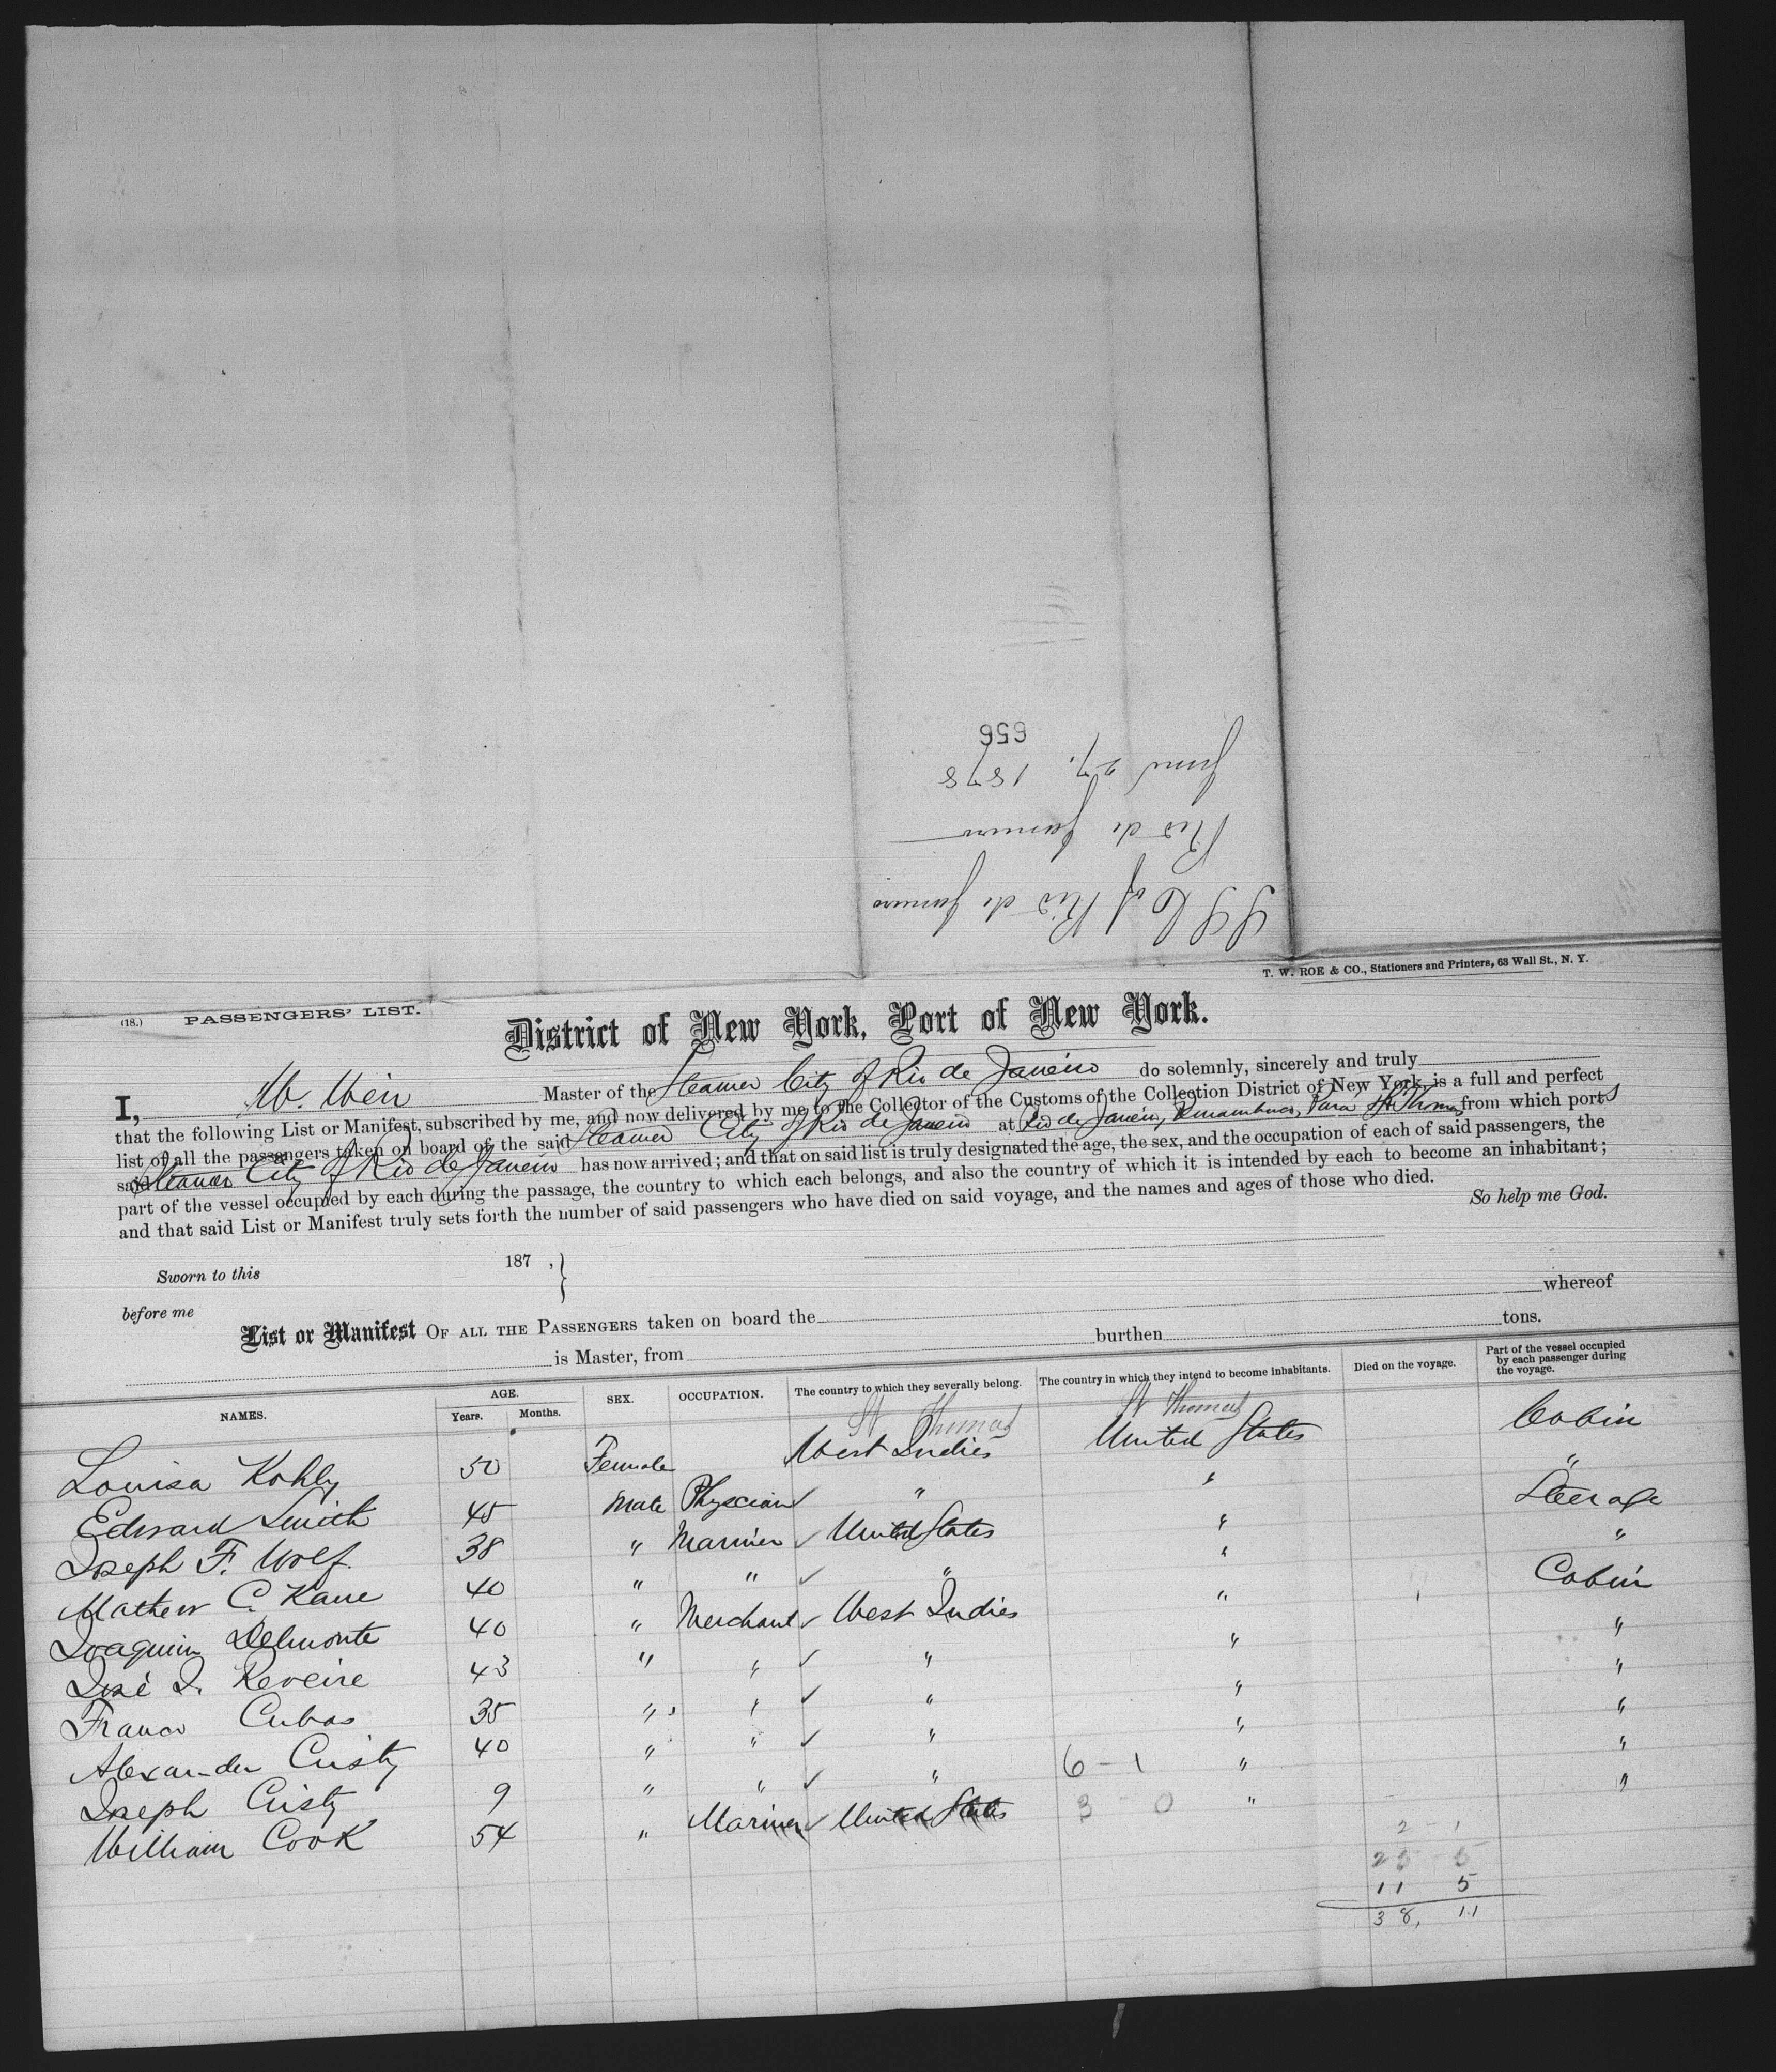 656
June 27. 1878
Rio de Janeiro
S S C of Rio de Janeiro
T. W. ROE & CO., Stationers and Printers, 63 Wall St., N. Y.
(18.) PASSENGERS' LIST.
District of New York, Port of New York.
I, W. Weir Master of the Steamer City of Rio de Janeiro do solemnly, sincerely and truly
that the following List or Manifest, subscribed by me, and now delivered by me to the Collector of the Customs of the Collection District of New York, is a full and perfect
list of all the passengers taken on board of the said Steamer City of Rio de Janeiro at Rio de Janeiro, Pernambuco, Para & St Thomas from which ports
said Steamer City of Rio de Janeiro has now arrived; and that on said list is truly designated the age, the sex, and the occupation of each of said passengers, the
part of the vessel occupied by each during the passage, the country to which each belongs, and also the country of which it is intended by each to become an inhabitant;
and that said List or Manifest truly sets forth the number of said passengers who have died on said voyage, and the names and ages of those who died.
So help me God.
Sworn to this 187 , }
before me
List or Manifest OF ALL THE PASSENGERS taken on board the whereof
is Master, from burthen tons.
NAMES. AGE. Years. Months. SEX. OCCUPATION. The country to which they severally belong. The country in which they intend to become inhabitants. Died on the voyage. Part of the vessel occupied by each passenger during the voyage.
St Thomas St Thomas
Louisa Kohly 50 Female West Indies United States Cabin
Edward Smith 45 Male Physician " " "
Joseph F. Wolf 38 " Mariner United States " Steerage
Mathew C. Kane 40 " " " " "
Joaquin Delmonte 40 " Merchant West Indies " Cabin
José J. Reveire 43 " " " " "
Franco Cubas 35 " " " " "
Alexander Cristy 40 " " " " "
Joseph Cristy 9 " " " 6 - 1 " "
William Cook 54 " Mariner United States 3 - 0 " "
2 - 1
25 5
11 5
38, 11